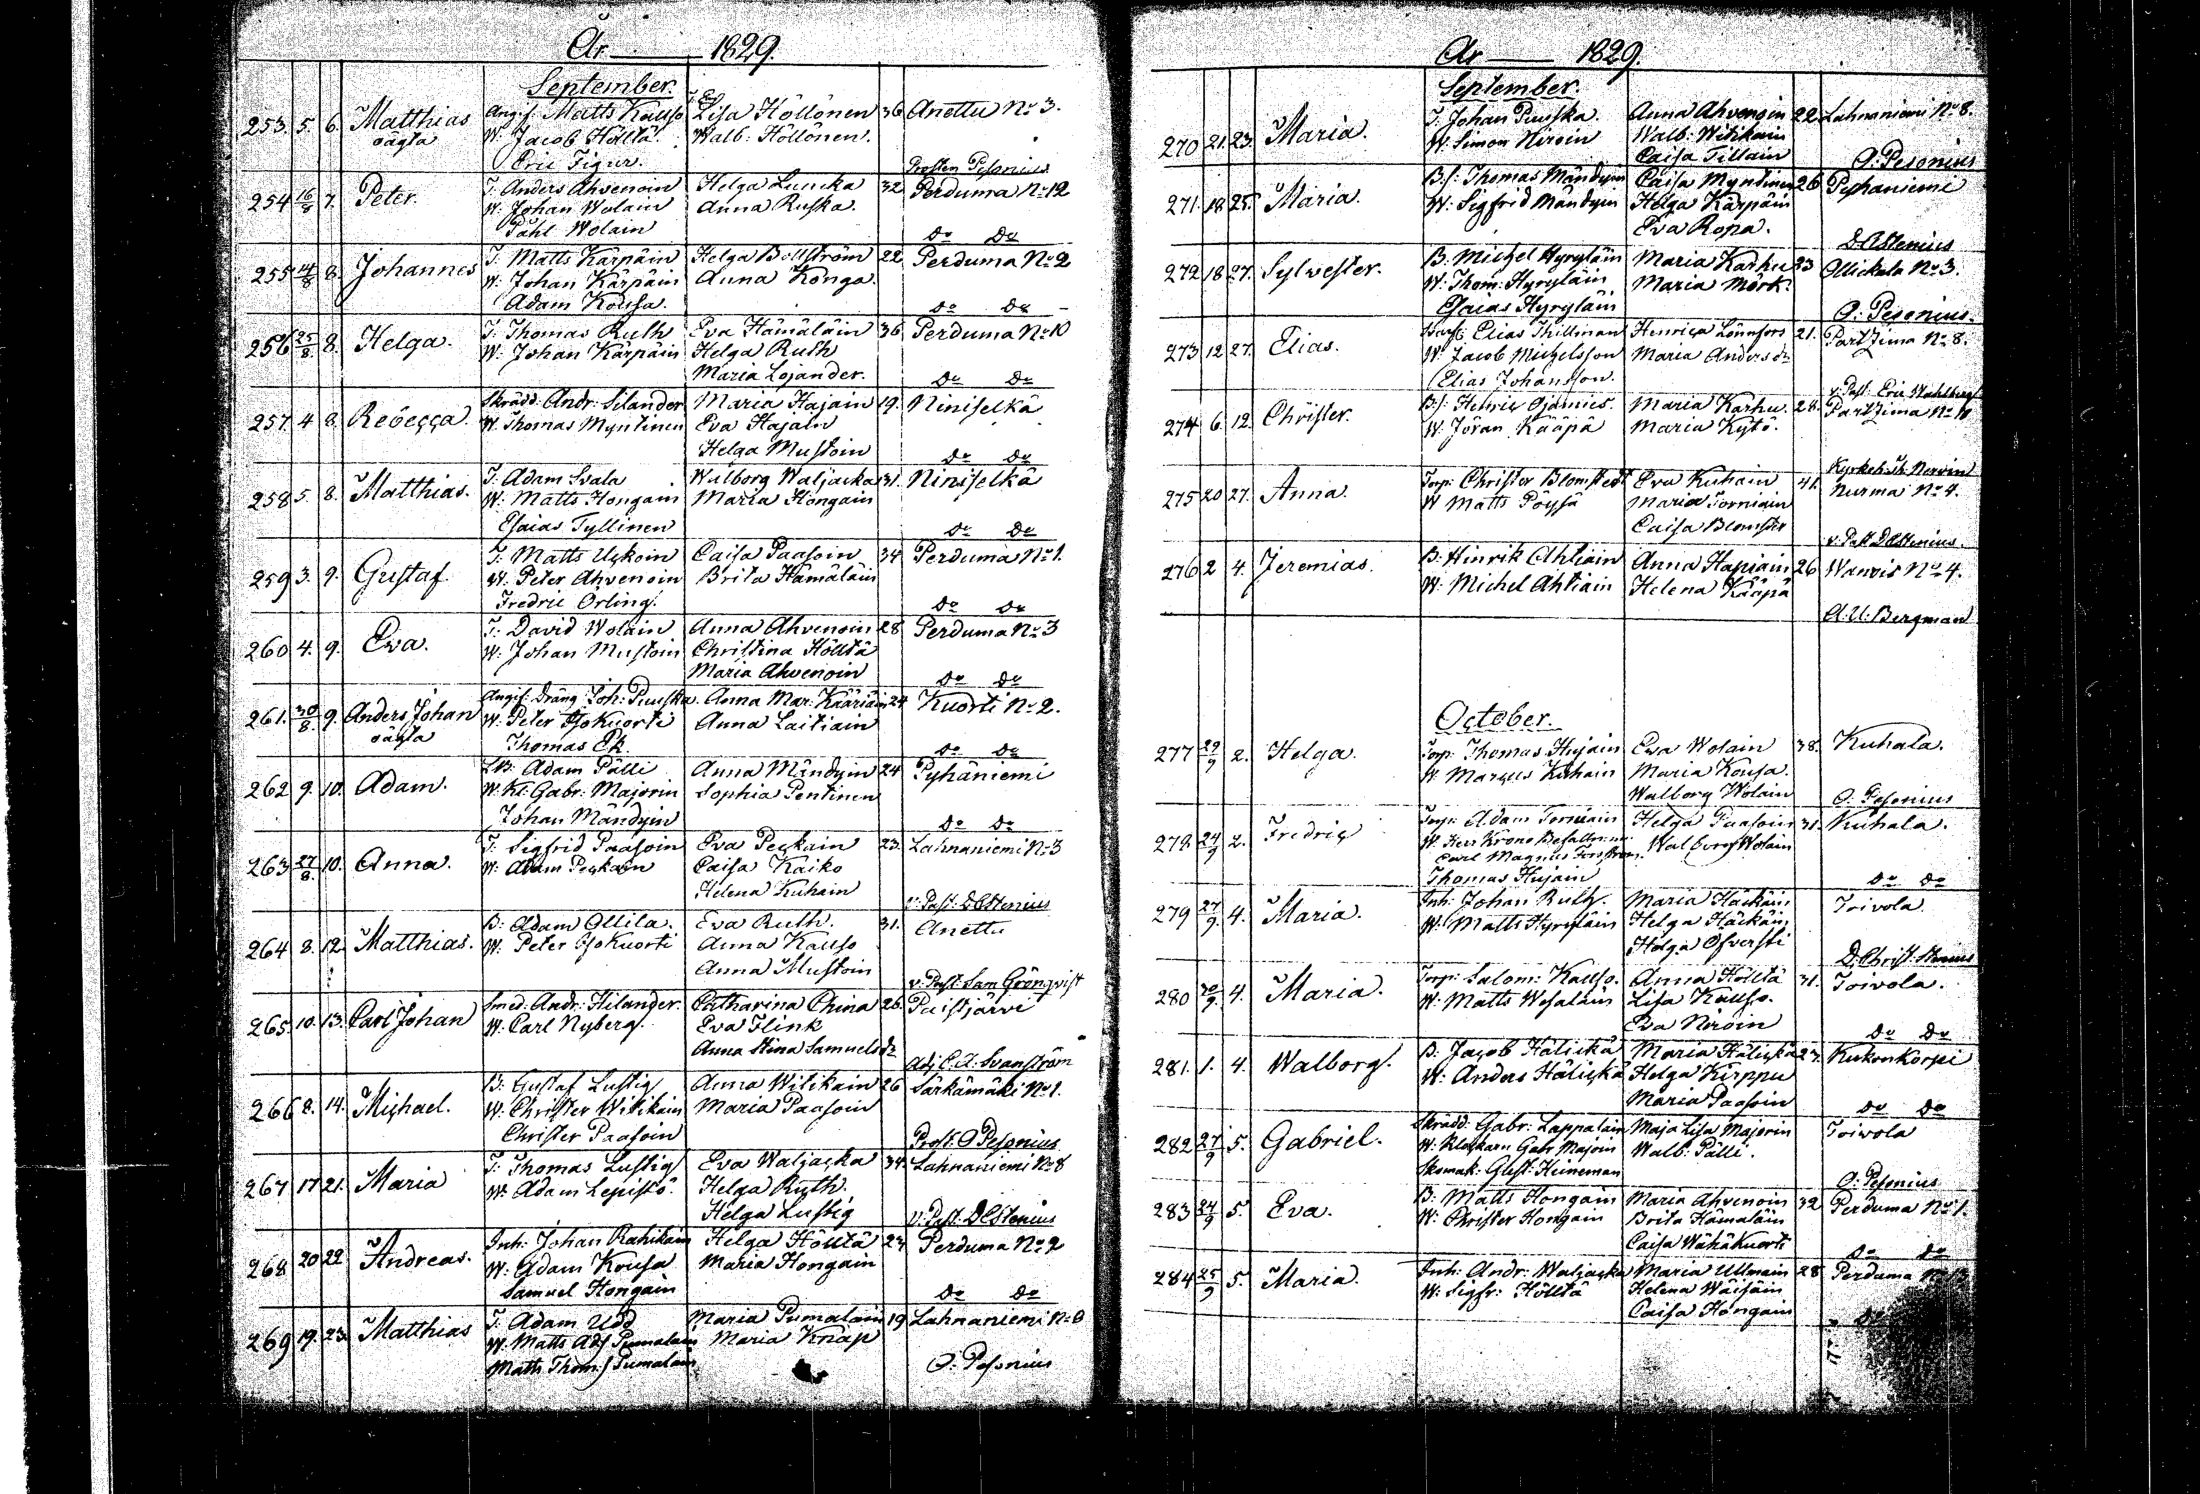 År 1829.
September.
253. 5. 6. Matthias Angif. Matts Kauso Lisa Höllönen 36 Anettu No 3.
oägta W. Jacob Höltä. Walb. Höllönen.
Eric Figur. Prosten Pesonius
254 16/8 7. Peter. T. Anders Ahvenoin Helga Luucka 32 Perduma No 12
W. Johan Wolain Anna Ruska.
Påhl Wolain Do Do
255 14/8 8. Johannes T. Matts Kärpäin Helga Bollström 22 Perduma No 2
W. Johan Kärpäin Anna Konga.
Adam Kousa. Do Do
256 25/8 8. Helga. T. Thomas Ruth Eva Hämäläin 36 Perduma No 10
W. Johan Kärpäin Helga Ruth
Maria Lojander. Do Do
257. 4 8. Rebecca. Skrädd. Andr: Silander Maria Hajain 19. Niniselkä
W. Thomas Myntinen Eva Hajain
Helga Mustoin Do Do
258 5. 8. Matthias. T. Adam Svala Walborg Waljacka 31. Niniselkä
W. Matts Hongain Maria Hongain
Esaias Tyllinen Do Do
259 3. 9. Gustaf. T. Matts Uskoin Caisa Paasoin 34 Perduma No 1.
W. Peter Ahvenoin Brita Hämäläin
Fredric Örling. Do Do
260 4. 9. Eva. T. David Wolain Anna Ahvenoin 28 Perduma No 3
W. Johan Mustoin Christina Höltä
Maria Ahvenoin Do Do
261. 30/8 9. Anders Johan Angif. Dräng Joh: Puuska. Anna Mar: Kääriäin 24 Kuorti No 2.
oägta W. Peter Isokuorti Anna Laitiain
Thomas Ek. Do Do
262 9. 10. Adam. Adam Pälli Anna Mändyin 24 Pyhäniemi
W. Kl: Gabr: Majorin Sophia Pentinen
Johan Mändyin Do Do
263 27/8 10. Anna. T. Sigfrid Paasoin Eva Peckain 23. Lahnaniemi No 3
W. Adam Peckain Caisa Kaiko
Helena Kuhain v: Past: D Stenius
264 8. 12. Matthias. B: Adam Ollila. Eva Ruth. 31. Anettu
W. Peter Isokuorti Anna Kauso
Anna Mustoin v: Past: Sam Grönqvist
265 10. 13. Carl Johan Smed: Andr: Hilander. Catharina China 26 Paistjärvi
W. Carl Nyberg. Eva Flink
Anna Stina Samuelsdr Adj C. A. Svanström
266 8. 14. Michael. B: Gustaf Lustig Anna Witikain 26 Särkämäki No 1.
W. Christer Witikain Maria Paasoin
Christer Paasoin Prost: O Pesonius
267 17 21. Maria T: Thomas Lustig Eva Waljacka 34. Lahnaniemi No 8
W: Adam Lepistö. Helga Ruth.
Helga Lustig v: Past: D Stenius
268 20 22 Andreas. Inh: Johan Rahikain Helga Höltä 23 Perduma No 2
W. Adam Kousa Maria Hongain
Samuel Hongain Do Do
269 19. 23 Matthias T. Adam Udd Maria Pumalain 19 Lahnaniemi No
W. Matts Ads Pumalain Maria Knap
Matts Thoms Pumalain O: Pesonius
År 1829.
September.
270 21. 23. Maria. T. Johan Puuska. Anna Ahvenoin 22. Lahnaniemi No 8.
W. Simon Niroin Walb. Witikain
Caisa Tillain O: Pesonius
271. 18 25. Maria. Bs: Thomas Mändyin Caisa Myntinen 26 Pyhäniemi
W. Sigfrid Mändyin Helga Kärpäin
Eva Ropa. D. Stenius
272 18 27. Sylvester. B. Michel Hyryläin Maria Karhu 23 Ollickala No 3.
W. Thom: Hyryläin Maria Mörk.
Esaias Hyryläin O: Pesonius.
273 12 27. Elias. Elias Thillman Henrica Lönnfors 21. Partzima No 8.
W. Jacob Michelsson Maria Andersdr
Elias Johansson. v: Past: Eric Wahlberg
274 6. 12. Christer. Bs: Henric Ojamies. Maria Karhu. 28. Partzima No
W. Jöran Kääpä Maria Kytö. Kyrkoh.
275 20 27. Anna. Torp: Christer Blomstedt Eva Kuhain 41. Nurma No 4.
W Matts Pöysä Maria Torniain
Caisa Blomster v: Past D Stenius.
276 2 4. Jeremias. B. Hinrik Ahtiain Anna Hapiain 26 Wanvis No 4.
W. Michel Ahtiain Helena Kääpä
A. U. Bergman
October.
277 29/9 2. Helga. Torp: Thomas Hujain Eva Wolain 38. Kuhala.
W. Marcus Kuhain Maria Kousa.
Walborg Wolain O. Pesonius
278. 24/9 2. Fredric Torp: Adam Torniain Helga Paasoin 31. Kuhala.
W. Herr Krono Befallnm: Walborg Wolain
Carl Magnus Forsström.
Thomas Hujain Do Do
279 27/9 4. Maria. Inh: Johan Ruth. Maria Häckäin Toivola.
W. Matts Hyryläin Helga Häckäin
Helga Öfversti D. Christ: Stenius
280 30/9 4. Maria. Torp: Salom: Kauso. Anna Höltä 31. Toivola.
W. Matts Wesaläin Lisa Kauso.
Eva Niroin Do Do
281. 1. 4. Walborg. B. Jacob Hälickä Maria Hälickä 27. Kukonkorpi
W. Anders Hälickä Helga Kirppu
Maria Paasoin Do Do
282 27/9 5. Gabriel. Skrädd: Gabr: Lappalain Maja Lisa Majorin Toivola
W. Klockarn Gabr Majoin Walb: Pälli.
Skomak: Gust: Heineman O: Pesonius
283 24/9 5. Eva. B. Matts Hongain Maria Ahvenoin 32 Perduma No 1.
W. Christer Hongain Brita Hämäläin
Caisa Wähäkuorti Do Do
284 25/9 5. Maria. Inh: Andr: Waljacka Maria Ullmain 28 Perduma No
W: Sigfr: Höltä Helena Wäisäin
Caisa Hongain Do